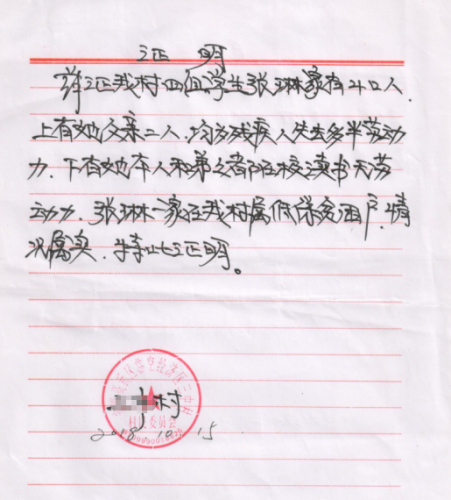 证明
兹证我村四组学生张琳家有4口人.
上有她父亲二人.均为残疾人失去多半劳动
力.下有她本人和弟弟都在校读书无劳
动力.张琳一家在我村属低保贫困户.情
况属实.特此证明。
村
村民委员会
2018 10 15